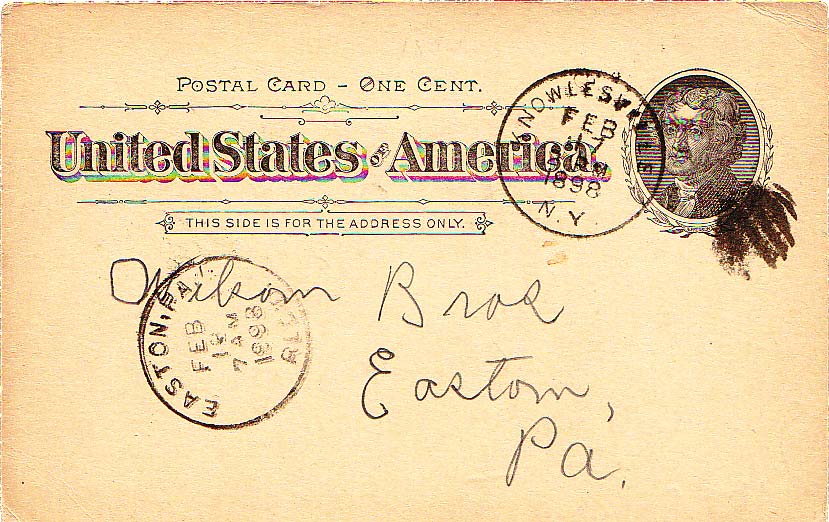 POSTAL CARD – ONE CENT.
United States of America.
THIS SIDE IS FOR THE ADDRESS ONLY.
KNOWLESVILLE
FEB
1898
N.Y.
Bros
Easton,
Pa.
EASTON, PA.
FEB
7 AM
1898
REC'D